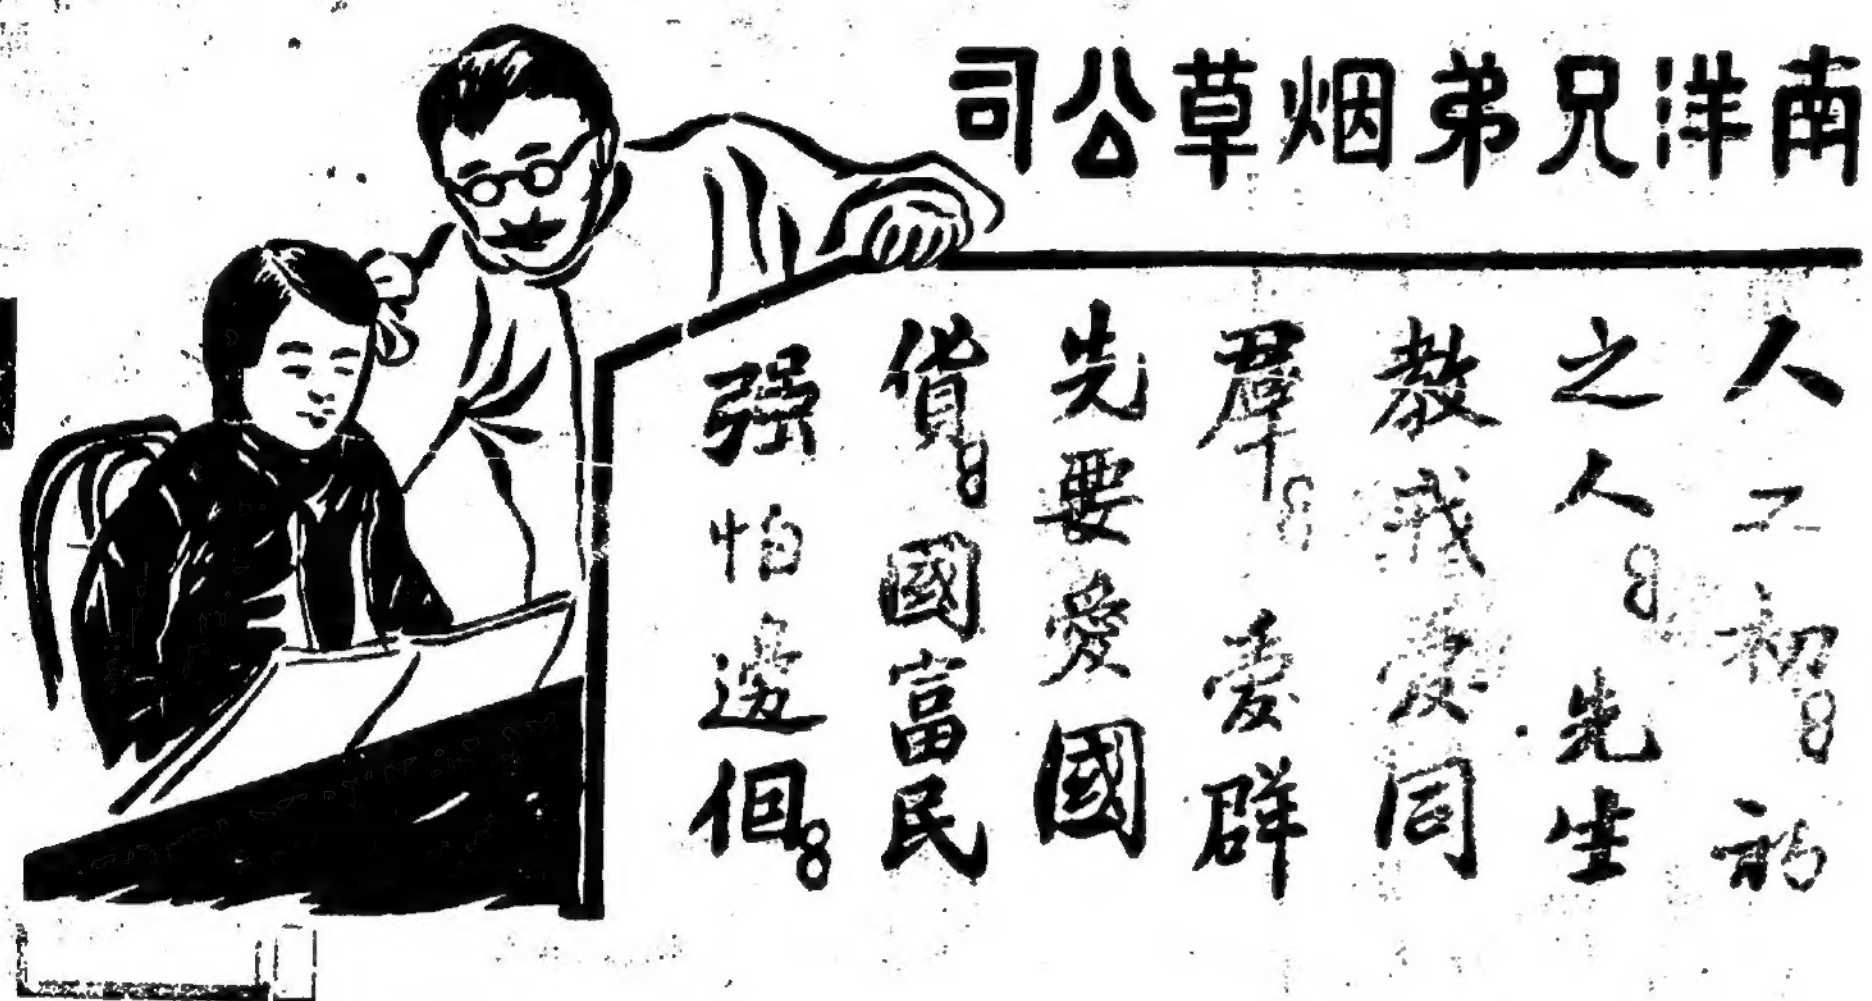 南洋兄弟烟草公司
人之初。初
之人。先生
教我愛同
羣。愛群
先要愛國
貨。國富民
强怕邊個。